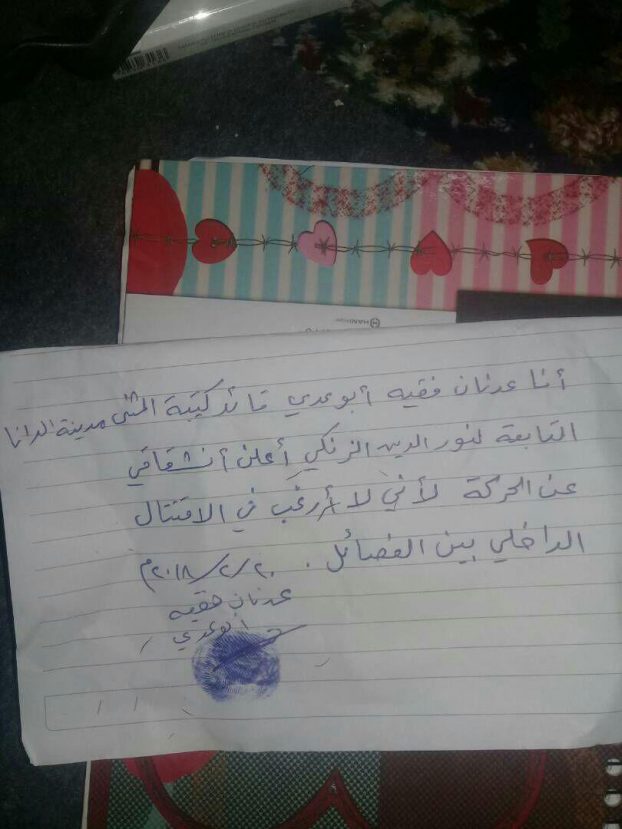 أنا عدنان فقيه أبو عدي قائد كتيبة المثنى مدينة الدانا
التابعة لنور الدين الزنكي أعلن أنشقاقي
عن الحركة لأني لا أرغب في الاقتتال
الداخلي بين الفصائل . ٢٠/٢/٢٠١٨م
عدنان فقيه
ابو عدي